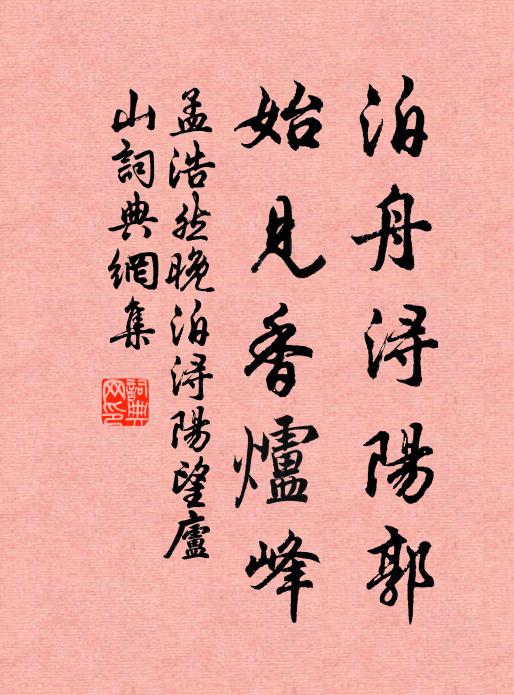 泊舟浔陽郭
始見香爐峰
孟浩然晚泊浔陽望廬
山詞典網集
詞典
网印